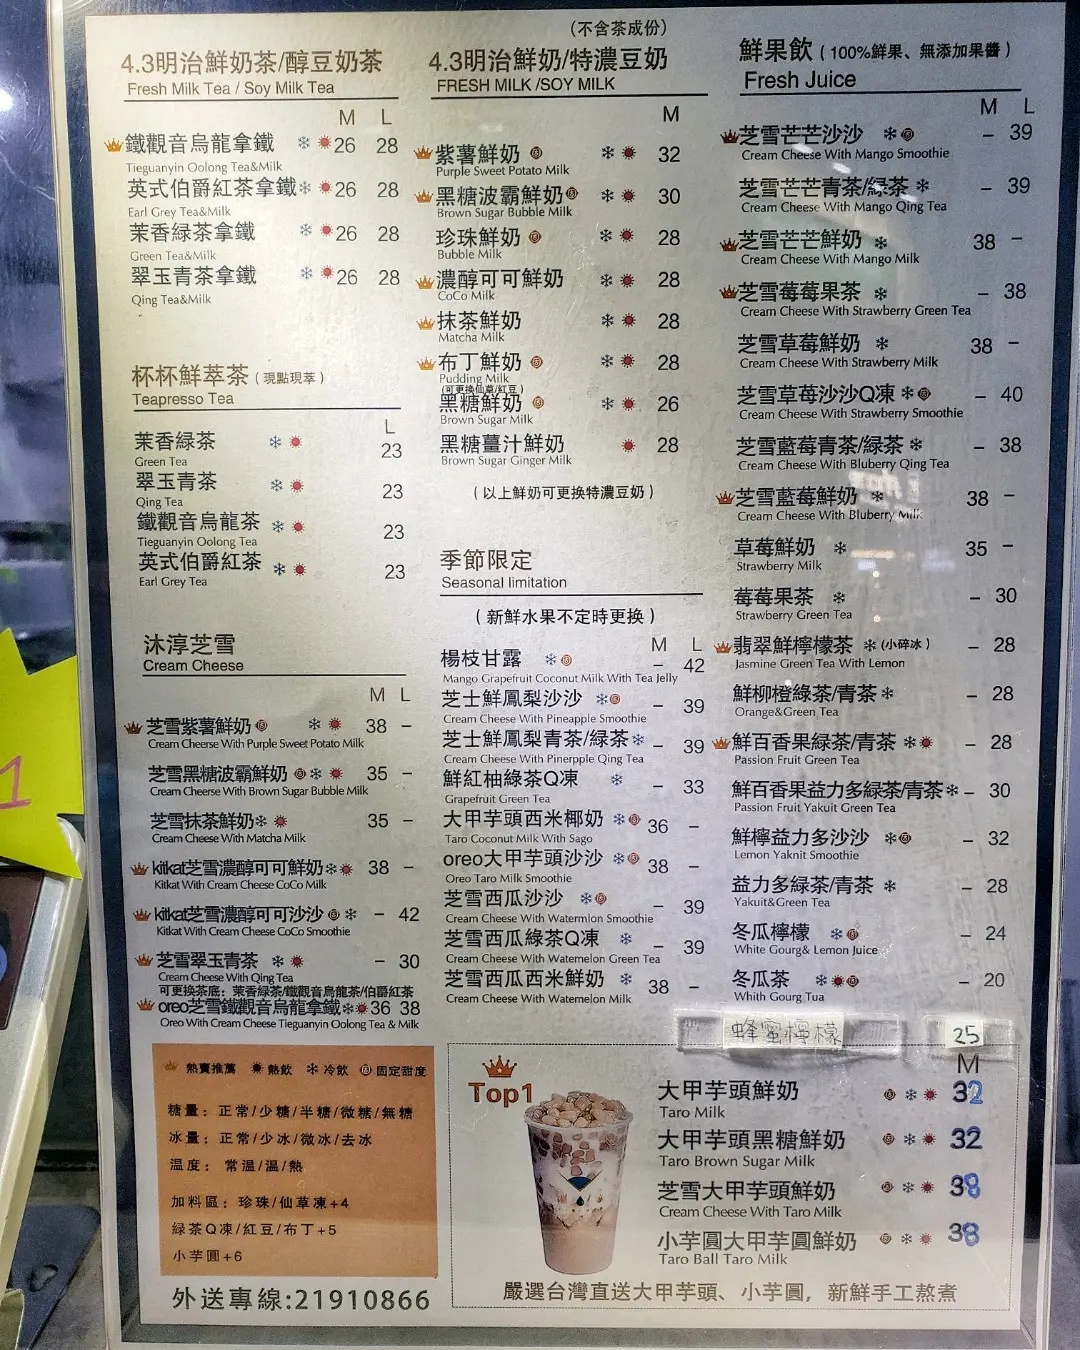 4.3明治鮮奶茶/醇豆奶茶
Fresh Milk Tea / Soy Milk Tea
M L
鐵觀音烏龍拿鐵 26 28
Tieguanyin Oolong Tea&Milk
英式伯爵紅茶拿鐵 26 28
Earl Grey Tea&Milk
茉香綠茶拿鐵 26 28
Green Tea&Milk
翠玉青茶拿鐵 26 28
Qing Tea&Milk
杯杯鮮萃茶(現點現萃)
Teapresso Tea
L
茉香綠茶 23
Green Tea
翠玉青茶 23
Qing Tea
鐵觀音烏龍茶 23
Tieguanyin Oolong Tea
英式伯爵紅茶 23
Earl Grey Tea
沐淳芝雪
Cream Cheese
M L
芝雪紫薯鮮奶 38 –
Cream Cheerse With Purple Sweet Potato Milk
芝雪黑糖波霸鮮奶 35 –
Cream Cheerse With Brown Sugar Bubble Milk
芝雪抹茶鮮奶 35 –
Cream Cheese With Matcha Milk
kitkat芝雪濃醇可可鮮奶 38 –
Kitkat With Cream Cheese CoCo Milk
kitkat芝雪濃醇可可沙沙 – 42
Kitkat With Cream Cheese CoCo Smoothie
芝雪翠玉青茶 – 30
Cream Cheese With Qing Tea
可更換茶底：茉香綠茶/鐵觀音烏龍茶/伯爵紅茶
oreo芝雪鐵觀音烏龍拿鐵 36 38
Oreo With Cream Cheese Tieguanyin Oolong Tea & Milk
熱賣推薦 熱飲 冷飲 固定甜度
糖量：正常/少糖/半糖/微糖/無糖
冰量：正常/少冰/微冰/去冰
溫度：常溫/溫/熱
加料區：珍珠/仙草凍+4
綠茶Q凍/紅豆/布丁+5
小芋圓+6
外送專線:21910866
(不含茶成份)
4.3明治鮮奶/特濃豆奶
FRESH MILK /SOY MILK
M
紫薯鮮奶 32
Purple Sweet Potato Milk
黑糖波霸鮮奶 30
Brown Sugar Bubble Milk
珍珠鮮奶 28
Bubble Milk
濃醇可可鮮奶 28
CoCo Milk
抹茶鮮奶 28
Matcha Milk
布丁鮮奶 28
Pudding Milk
(可更換仙草/紅豆)
黑糖鮮奶 26
Brown Sugar Milk
黑糖薑汁鮮奶 28
Brown Sugar Ginger Milk
(以上鮮奶可更換特濃豆奶)
季節限定
Seasonal limitation
(新鮮水果不定時更換)
M L
楊枝甘露 – 42
Mango Grapefruit Coconut Milk With Tea Jelly
芝士鮮鳳梨沙沙 – 39
Cream Cheese With Pineapple Smoothie
芝士鮮鳳梨青茶/綠茶 – 39
Cream Cheese With Pinerpple Qing Tea
鮮紅柚綠茶Q凍 – 33
Grapefruit Green Tea
大甲芋頭西米椰奶 36 –
Taro Coconut Milk With Sago
oreo大甲芋頭沙沙 38 –
Oreo Taro Milk Smoothie
芝雪西瓜沙沙 – 39
Cream Cheese With Watermlon Smoothie
芝雪西瓜綠茶Q凍 – 39
Cream Cheese With Watemelon Green Tea
芝雪西瓜西米鮮奶 38 –
Cream Cheese With Watemelon Milk
鮮果飲(100%鮮果、無添加果醬)
Fresh Juice
M L
芝雪芒芒沙沙 – 39
Cream Cheese With Mango Smoothie
芝雪芒芒青茶/綠茶 – 39
Cream Cheese With Mango Qing Tea
芝雪芒芒鮮奶 38 –
Cream Cheese With Mango Milk
芝雪莓莓果茶 – 38
Cream Cheese With Strawberry Green Tea
芝雪草莓鮮奶 38 –
Cream Cheese With Strawberry Milk
芝雪草莓沙沙Q凍 – 40
Cream Cheese With Strawberry Smoothie
芝雪藍莓青茶/綠茶 – 38
Cream Cheese With Bluberry Qing Tea
芝雪藍莓鮮奶 38 –
Cream Cheese With Bluberry Milk
草莓鮮奶 35 –
Strawberry Milk
莓莓果茶 – 30
Strawberry Green Tea
翡翠鮮檸檬茶 (小碎冰) – 28
Jasmine Green Tea With Lemon
鮮柳橙綠茶/青茶 – 28
Orange&Green Tea
鮮百香果綠茶/青茶 – 28
Passion Fruit Green Tea
鮮百香果益力多綠茶/青茶 – 30
Passion Fruit Yakuit Green Tea
鮮檸益力多沙沙 – 32
Lemon Yaknit Smoothie
益力多綠茶/青茶 – 28
Yakuit&Green Tea
冬瓜檸檬 – 24
White Gourg& Lemon Juice
冬瓜茶 – 20
Whith Gourg Tua
蜂蜜檸檬 25
Top1
M
大甲芋頭鮮奶 32
Taro Milk
大甲芋頭黑糖鮮奶 32
Taro Brown Sugar Milk
芝雪大甲芋頭鮮奶 38
Cream Cheese With Taro Milk
小芋圓大甲芋圓鮮奶 38
Taro Ball Taro Milk
嚴選台灣直送大甲芋頭、小芋圓，新鮮手工熬煮
1